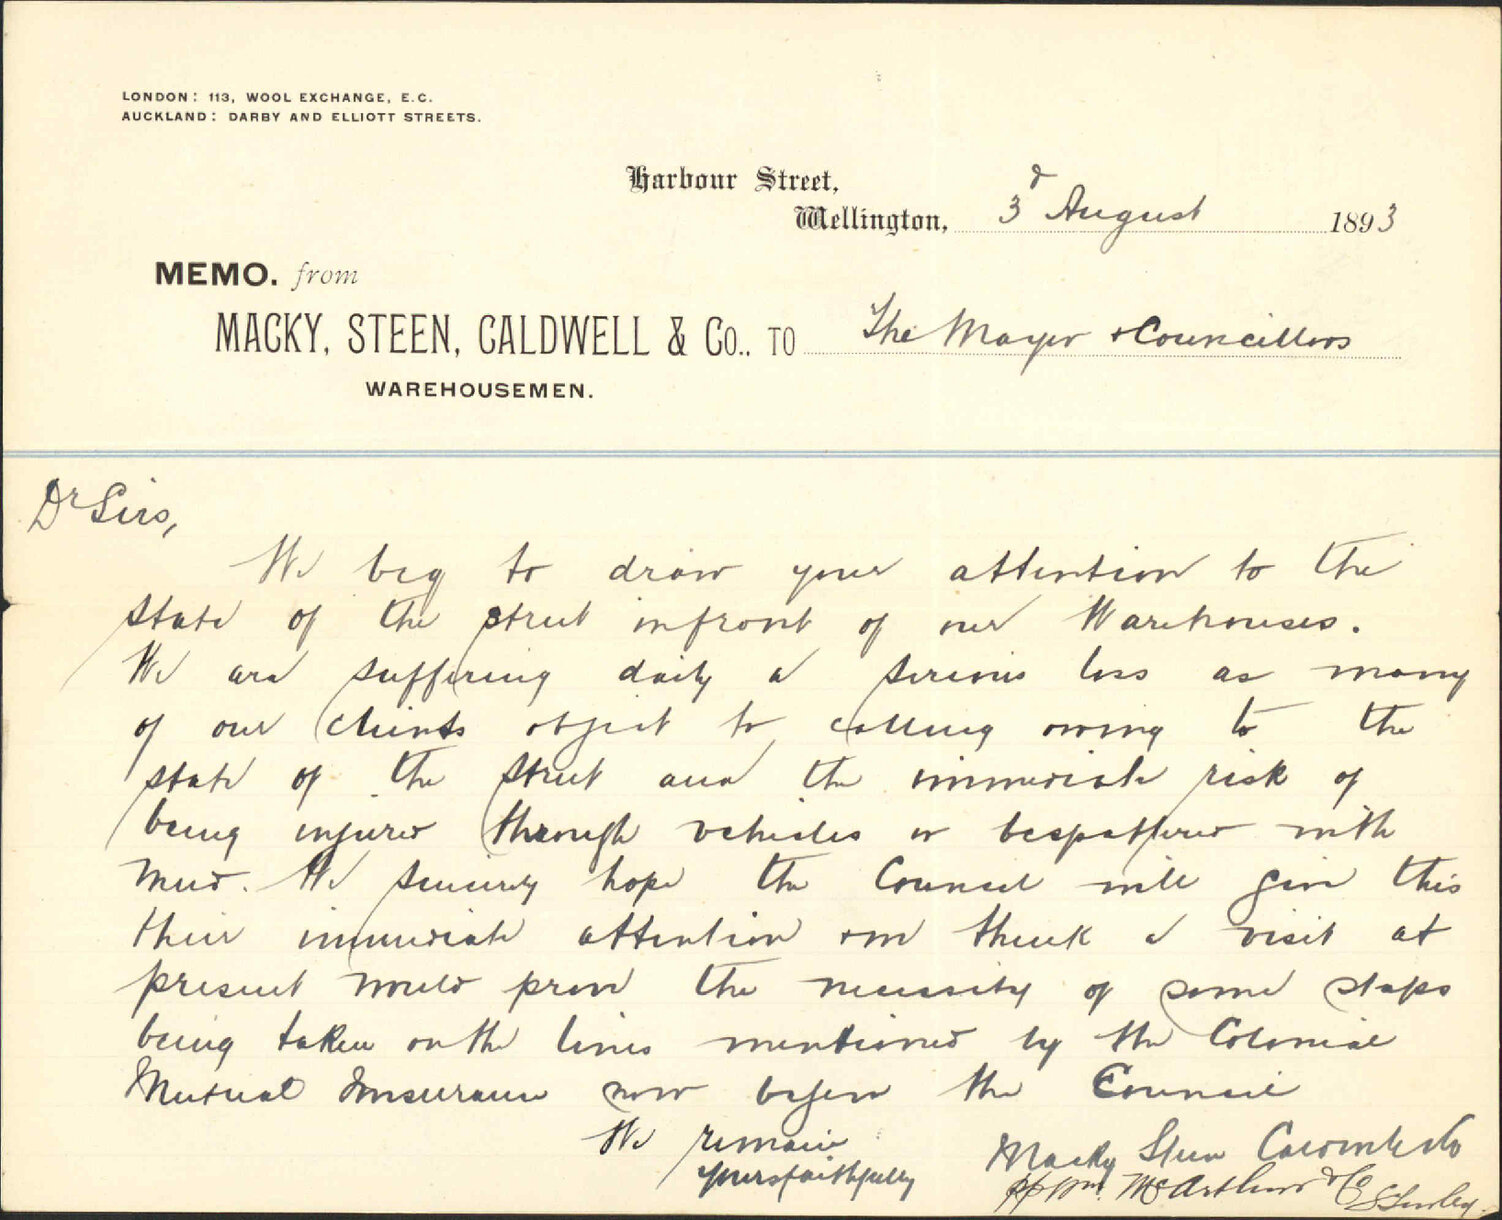 LONDON: 113, WOOL EXCHANGE, E.C.
AUCKLAND: DARBY AND ELLIOTT STREETS.
Harbour Street,
Wellington, 3d August 1893
MEMO. from
MACKY, STEEN, CALDWELL & Co.. TO The Mayor & Councillors
WAREHOUSEMEN.
Dr Sirs,
We beg to draw your attention to the
state of the street infront of our Warehouses.
We are suffering daily a serious loss as many
of our clients object to calling owing to the
state of the street and the immediate risk of
being injured through vehicles or bespattered with
mud. We sincerely hope the Council will give this
their immediate attention & think a visit at
present would prove the necessity of some steps
being taken on the lines mentioned by the Colonial
Mutual Insurance now before the Council
We remain
yours faithfully
Macky Steen Caldwell & Co
pp Wm. McArthur & Co